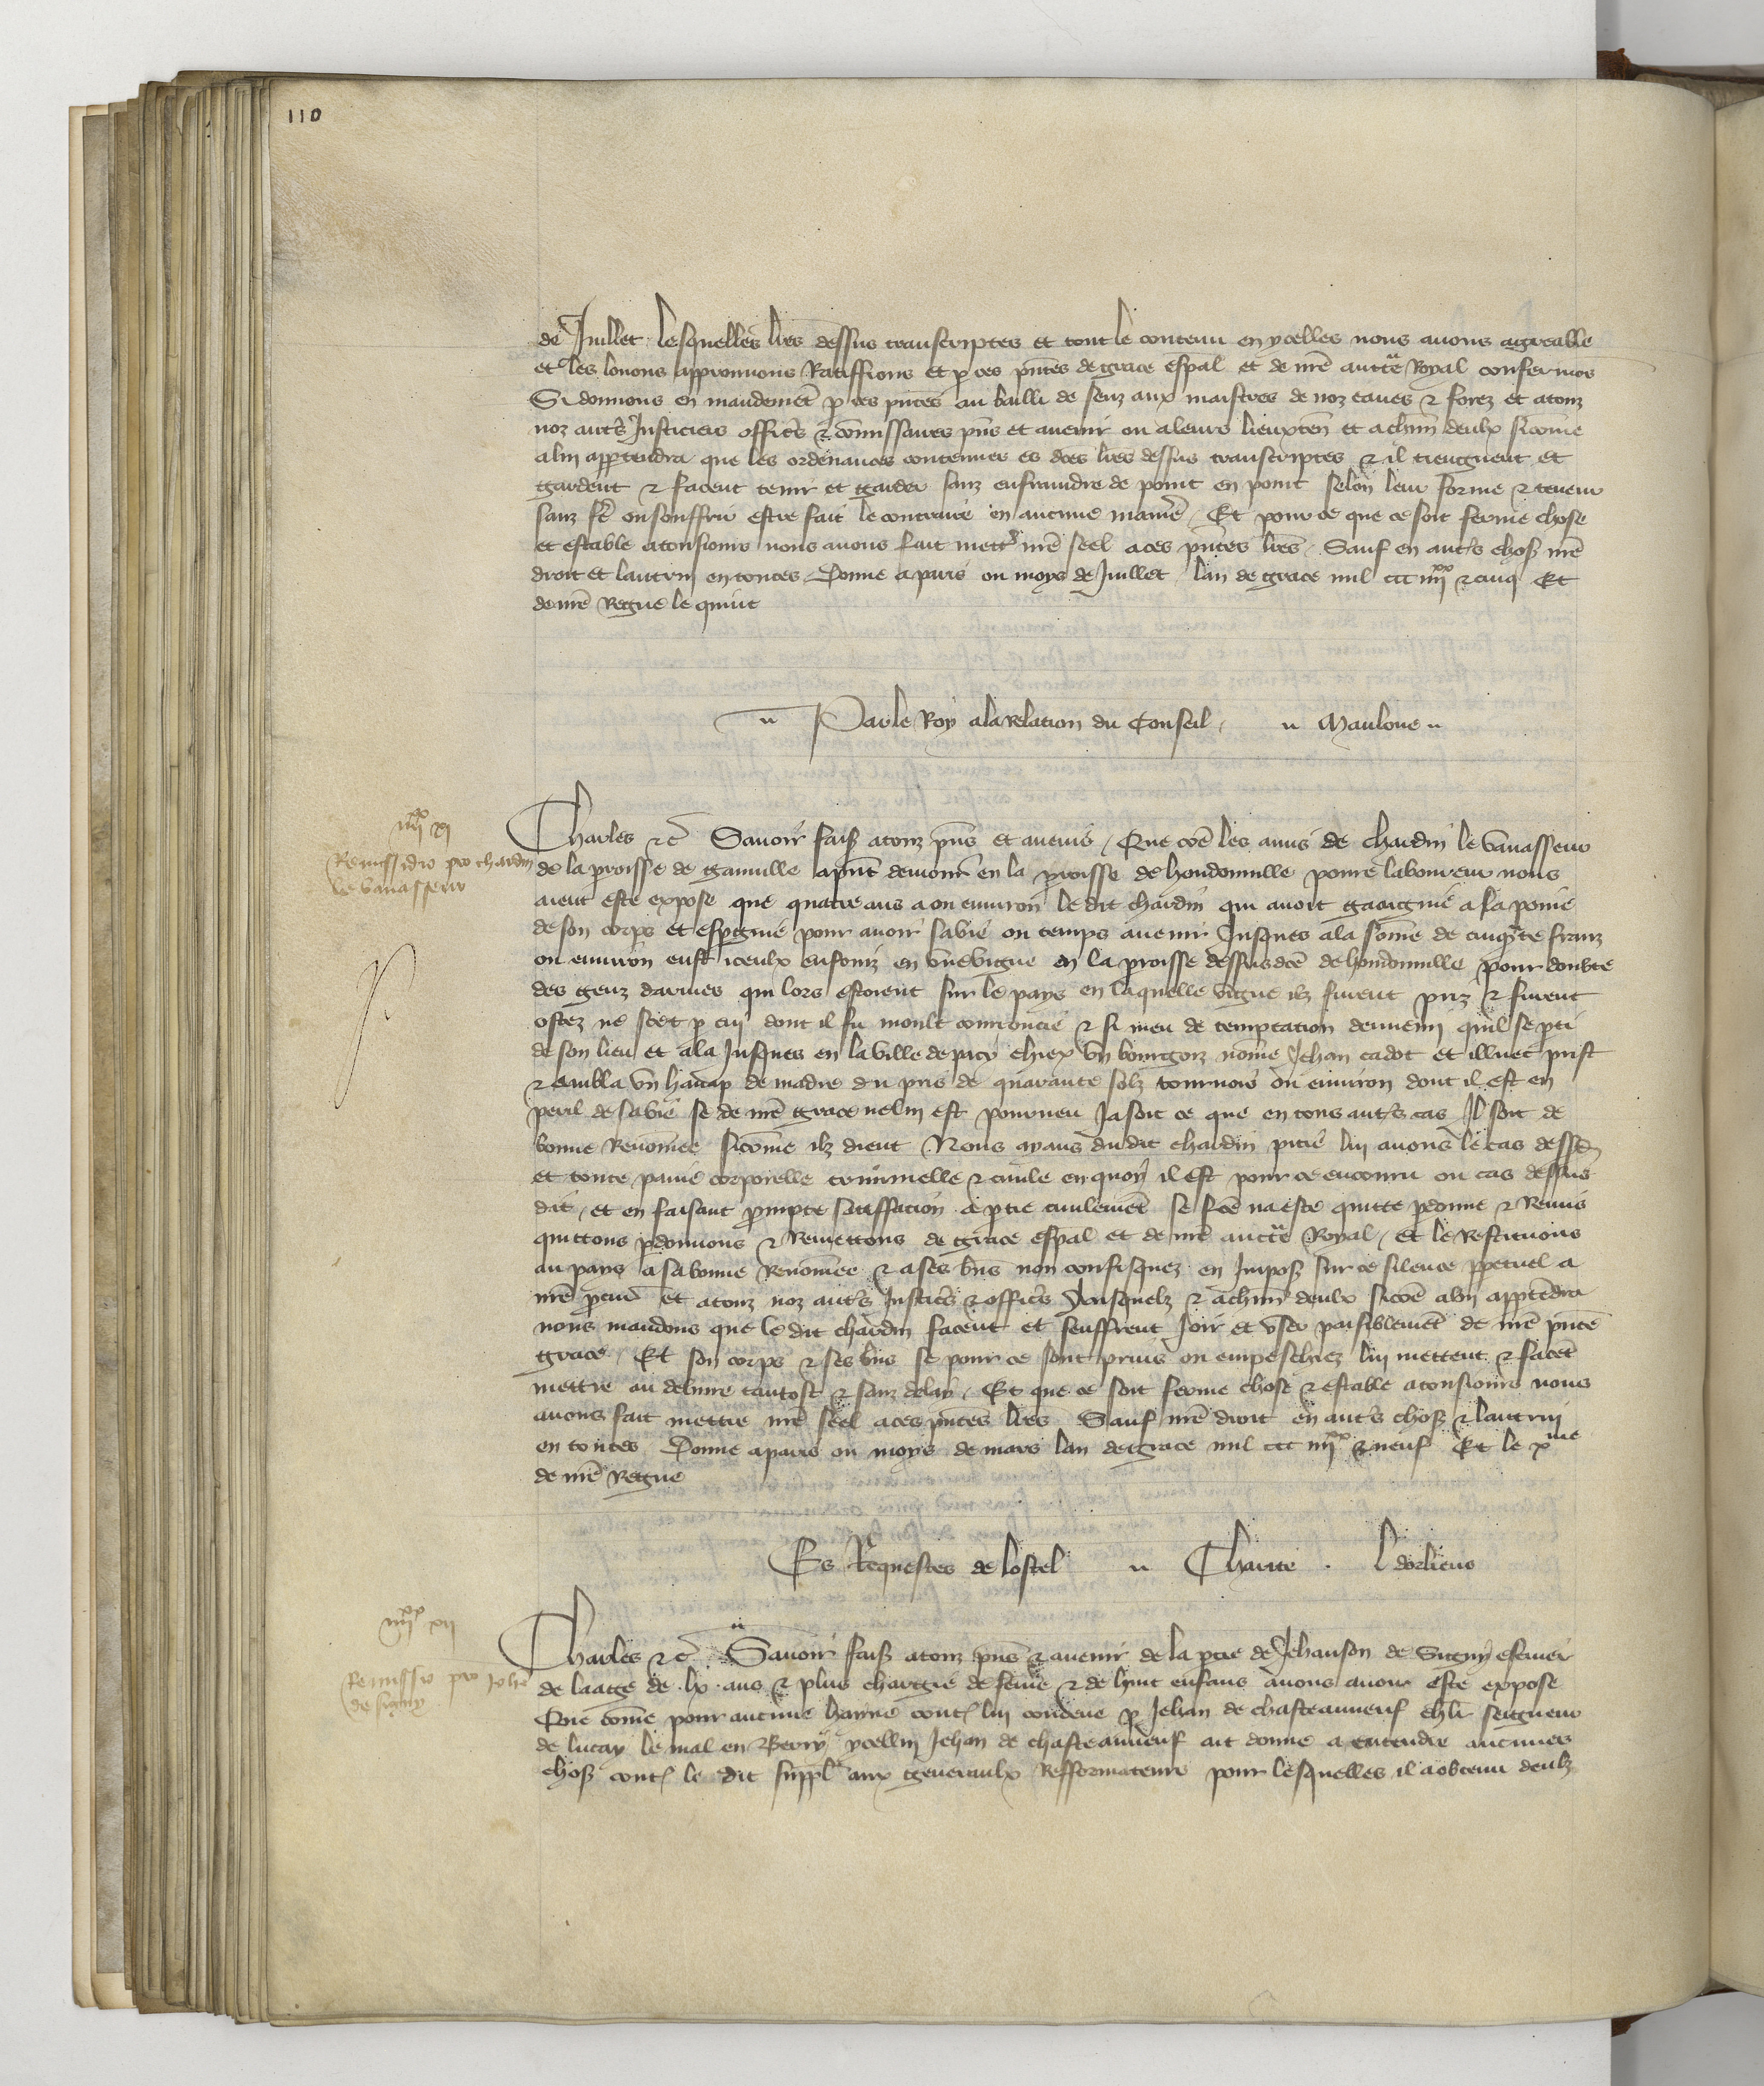 110
de Juillet lesquelles lres dessus transcriptes et tout le contenu en ycelles nous avons agreable
et les louons approuvons Ratiffions et p ces pntes de grace espal et de nre auctte Royal confermos
Si donnons en mandemet p ces pntes au bailli de Senz aux maistres de noz eaues & forez et a touz
noz autrs Justiciers officrs & comissaires pns et avenir ou a leurs lieuxten et a chun deulx sicome
a lui apptendra que les ordenances contenues es dces lres dessus transcriptes & il tiengnent et
gardent & facent tenir et garder sanz enfraindre de point en point selon leur forme & teneur
sanz fe ou souffrir estre fait le contraire en aucune manie Et pour ce que ce soit ferme chose
et estable a tousiours nous avons fait mettr nre seel a ces pntes lres Sauf en autrs choss nre
droit et lautrui en toutes Donne a paris ou moys de Juillet lan de grace mil ccc iiijxx & cinq Et
de nre Regne le quint
Par le Roy a la relation du Conseil Mauloue
iiijxx xj
Remissio pro chardin
le vavasseur
Charles &c Savoir faiss a touz pns et avenir Que coe les amis de chardin le vavasseur
de la proisse de gainville a pnt demour en la proisse de houdonville povre laboureur nous
aient este expose que quatre ans a ou environ le dit chardin qui avoit gaaigne a sa peine
de son corps et espgnie pour avoir sa vie ou temps avenir Jusques a la some de cinqte franz
ou environ eust iceulx enfouiz en une vigne en la proisse dessusdce de houdonville pour doubte
des genz darmes qui lors estoient sur le pays en laquelle vigne ilz furent priz & furent
ostez ne scet p cui dont il fu moult courroucie & si meu de temptation dennemi quil se pti
de son lieu et ala Jusques en la ville de pacy chiex un bourgois nome Jehan cadot et illuec prist
& embla un hanap de madre du pris de quarante solz tournois ou environ dont il est en
peril de sa vie se de nre grace ne lui est pourveu Ja soit ce que en tous autrs cas Il soit de
bonne Renomee sicome ilz dient Nous ayans dudit chardin pitie lui avons le cas dessd
et toute paine corporelle criminelle & civile en quoy il est pour ce encouru ou cas dessus
dit et en faisant prompte satiffacion a ptie civilemet se fce na este quitte pdonne & Remis
quittons pdonnons & Remettons de grace espal et de nre auctte Royal Et le Restituons
au pays a sa bonne Renomee & a ses bns non confisquez en Imposs sur ce silence ppetuel a
nre pcur et a touz noz autrs Justicrs & officrs Ausquelz & a chun deulx sicoe a lui apptedra
nous mandons que le dit chardin facent et seuffrent Joir et user paisiblemet de nre pnte
grace Et son corps & ses bns se pour ce sont prins ou empeschiez lui mettent & facet
mettre au delivre tantost & sanz delay Et que ce soit ferme chose & estable a tousiours nous
avons fait mettre nre seel a ces pntes lres Sauf nre droit en autrs choss & lautrui
en toutes Donne a paris ou moys de mars lan de grace mil ccc iiijxx & neuf Et le xme
de nre Regne
Es Requestes de lostel Charite L dorliens
iiijxx xij
Remissio pro Johe
de signy
Charles &c Savoir faiss a touz pns & avenir de la ptie de Jehanson de Signy escuier
de laage de lx ans & plus chargie de feme & de huit enfans avons avoir este expose
Que come pour aucune haine cont lui conceue p Jehan de chasteauneuf chlr seigneur
de lucay le mal en Berry ycellui Jehan de chasteauneuf ait donne a entendre aucunes
choss cont le dit suppl aux generaulx Refformateurs pour lesquelles il a obtenu deulz